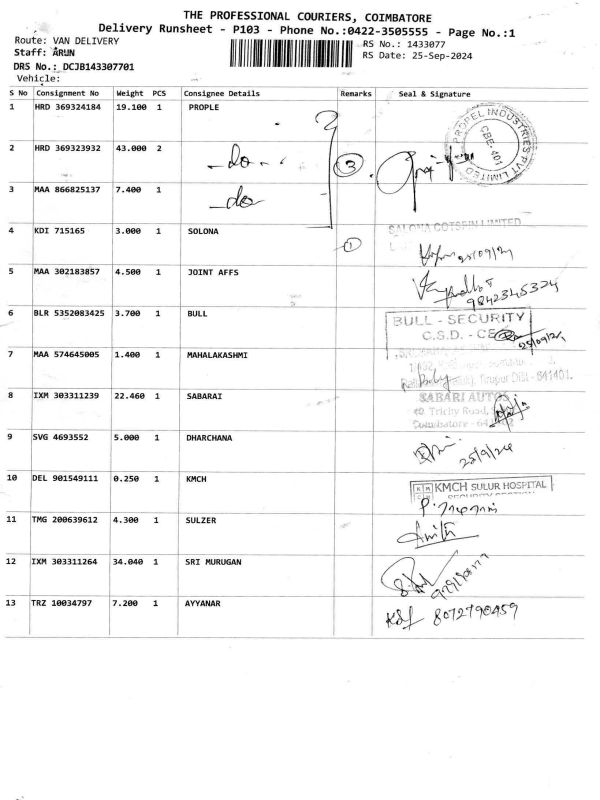 THE PROFESSIONAL COURIERS, COIMBATORE
Delivery Runsheet - P103 - Phone No.:0422-3505555 - Page No.:1
Route: VAN DELIVERY
RS No.: 1433077
Staff: ARUN
RS Date: 25-Sep-2024
DRS No.: DCJB143307701
Vehicle:
S No Consignment No Weight PCS Consignee Details Remarks Seal & Signature
1 HRD 369324184 19.100 1 PROPLE PROPEL INDUSTRIES PVT LIMITED CBE-401
2 HRD 369323932 43.000 2 -do- 3
3 MAA 866825137 7.400 1 -do
4 KDI 715165 3.000 1 SOLONA 1 SALONA COTSPIN LIMITED
25/09/24
5 MAA 302183857 4.500 1 JOINT AFFS
9842345324
6 BLR 5352083425 3.700 1 BULL BULL - SECURITY
C.S.D. - CBE
25/09/24
7 MAA 574645005 1.400 1 MAHALAKASHMI
Tirupur Dist - 641401.
8 IXM 303311239 22.460 1 SABARAI SABARI AUTOS
Trichy Road,
Coimbatore - 64
9 SVG 4693552 5.000 1 DHARCHANA
25/9/24
10 DEL 901549111 0.250 1 KMCH KMCH SULUR HOSPITAL
SECURITY SECTION
11 TMG 200639612 4.300 1 SULZER
12 IXM 303311264 34.040 1 SRI MURUGAN
13 TRZ 10034797 7.200 1 AYYANAR 8072790459